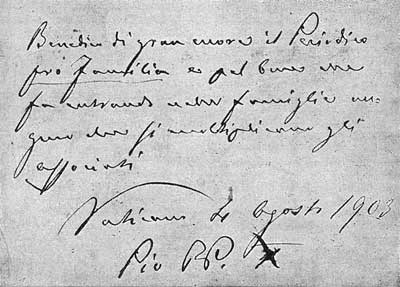 Benedico di gran cuore il Periodico
pro Familia e pel bene che
fa entrando nelle famiglie au-
guro che si moltiplicano gli
associati
Vaticano 4 Agosto 1903
Pio PP. X